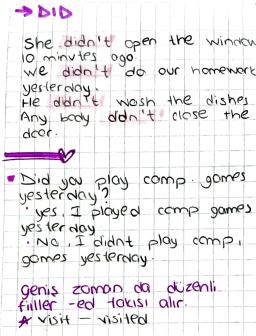 → DID
She didn't open the window
10 minutes ago.
we didn't do our homework
yesterday.
He ddn't wash the dishes
Any body ddn't close the
door.
• Did you play comp. games
yesterday?
• yes, I played comp games
yesterday
• No, I didnt play comp,
games yesterday.
geniş zaman da düzenli
fiiller -ed takısı alır.
★ visit – visited